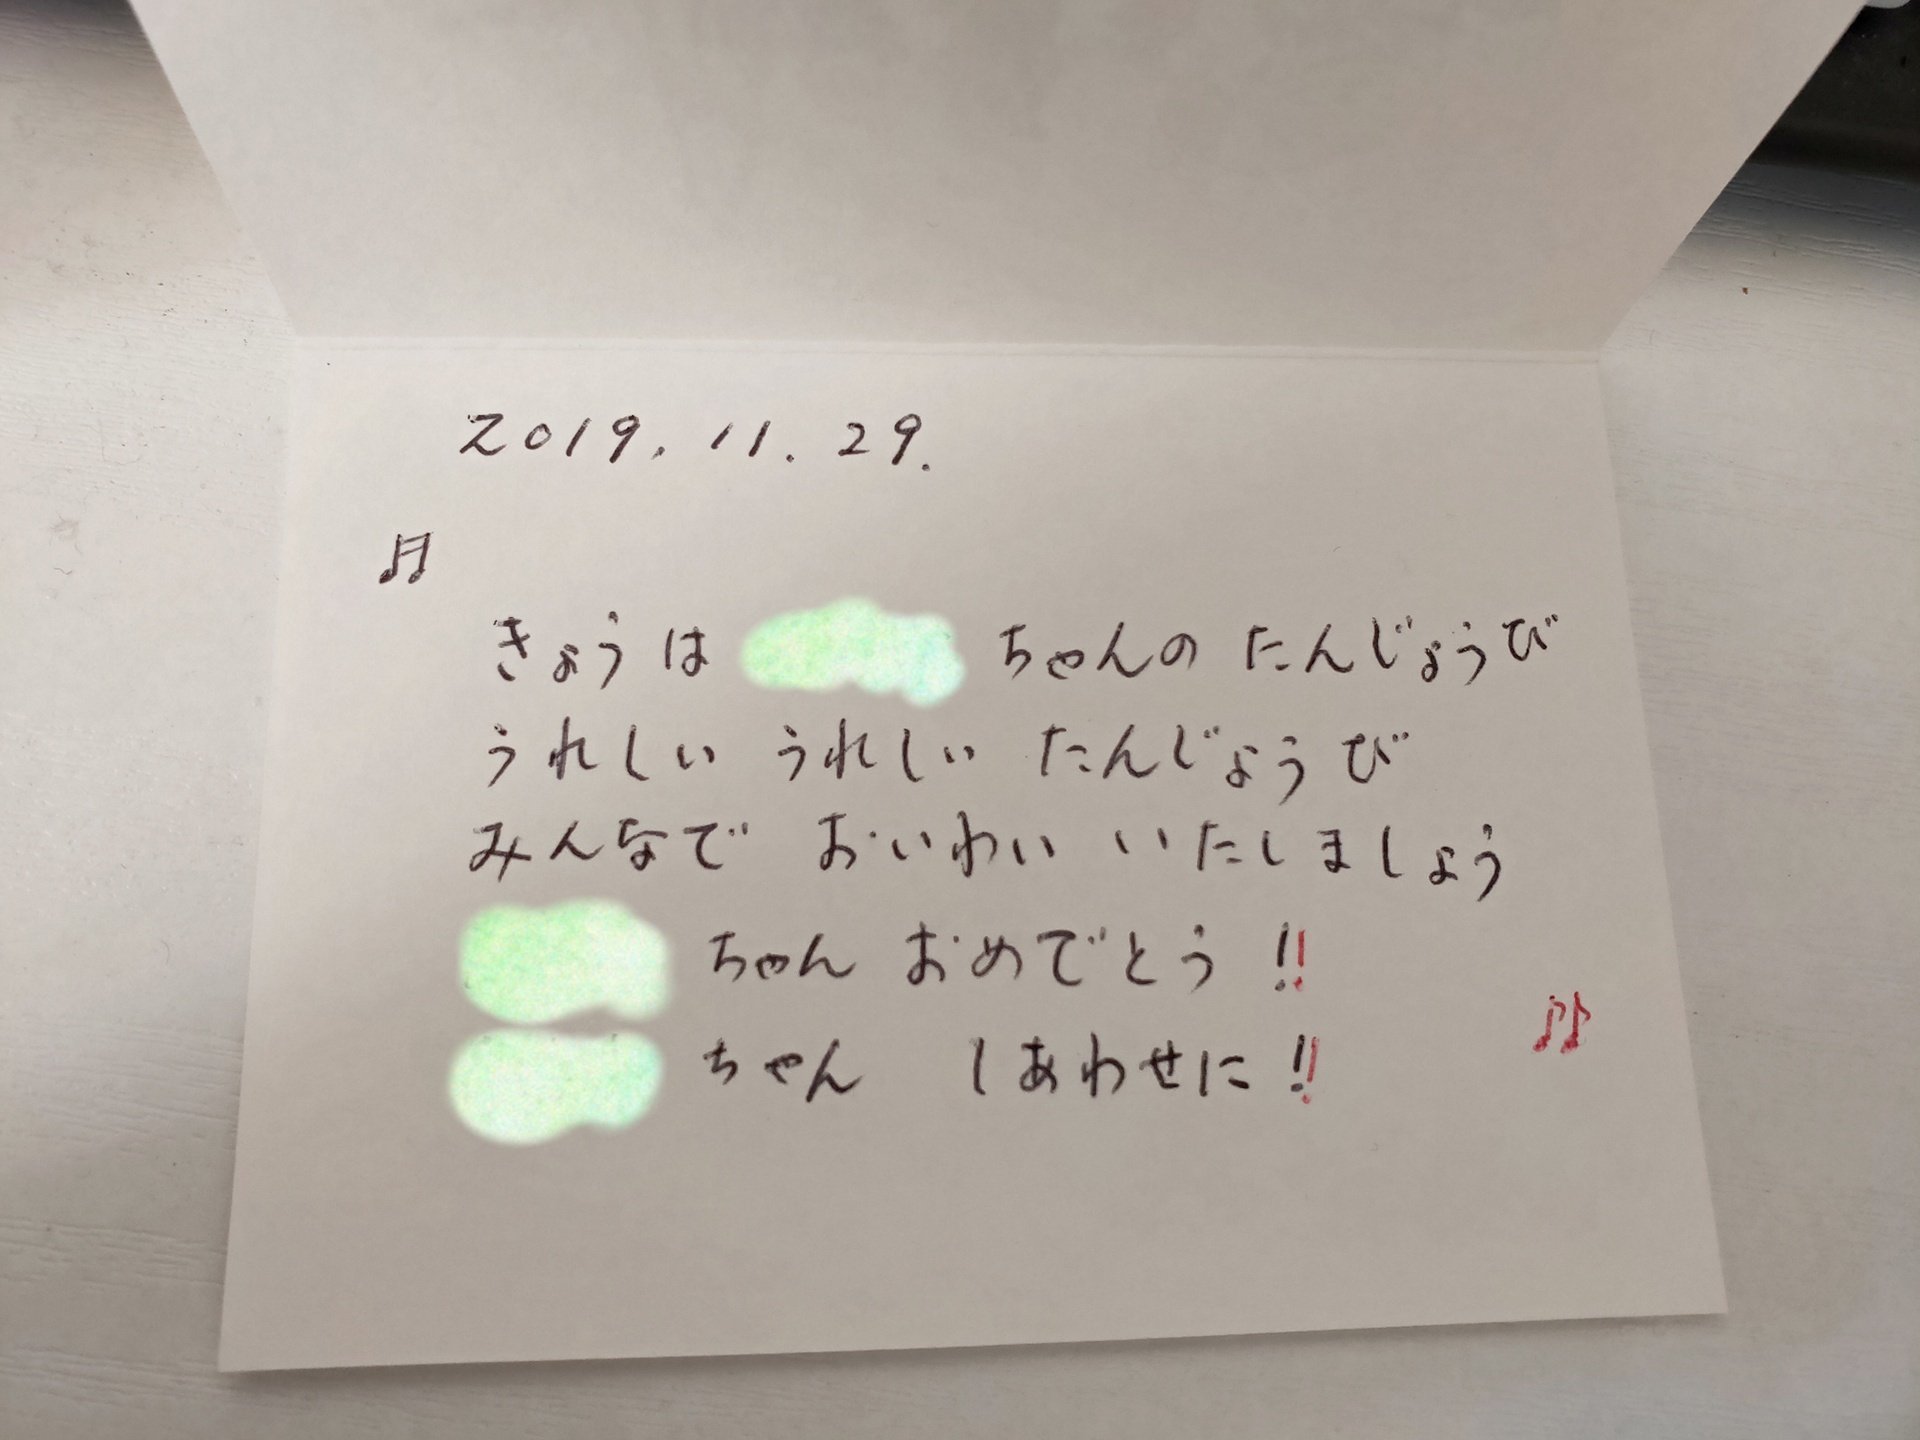 2019. 11. 29.
♬
きょうは ちゃんの たんじょうび
うれしい うれしい たんじょうび
みんなで おいわい いたしましょう
ちゃん おめでとう!!
♪♪
ちゃん しあわせに!!